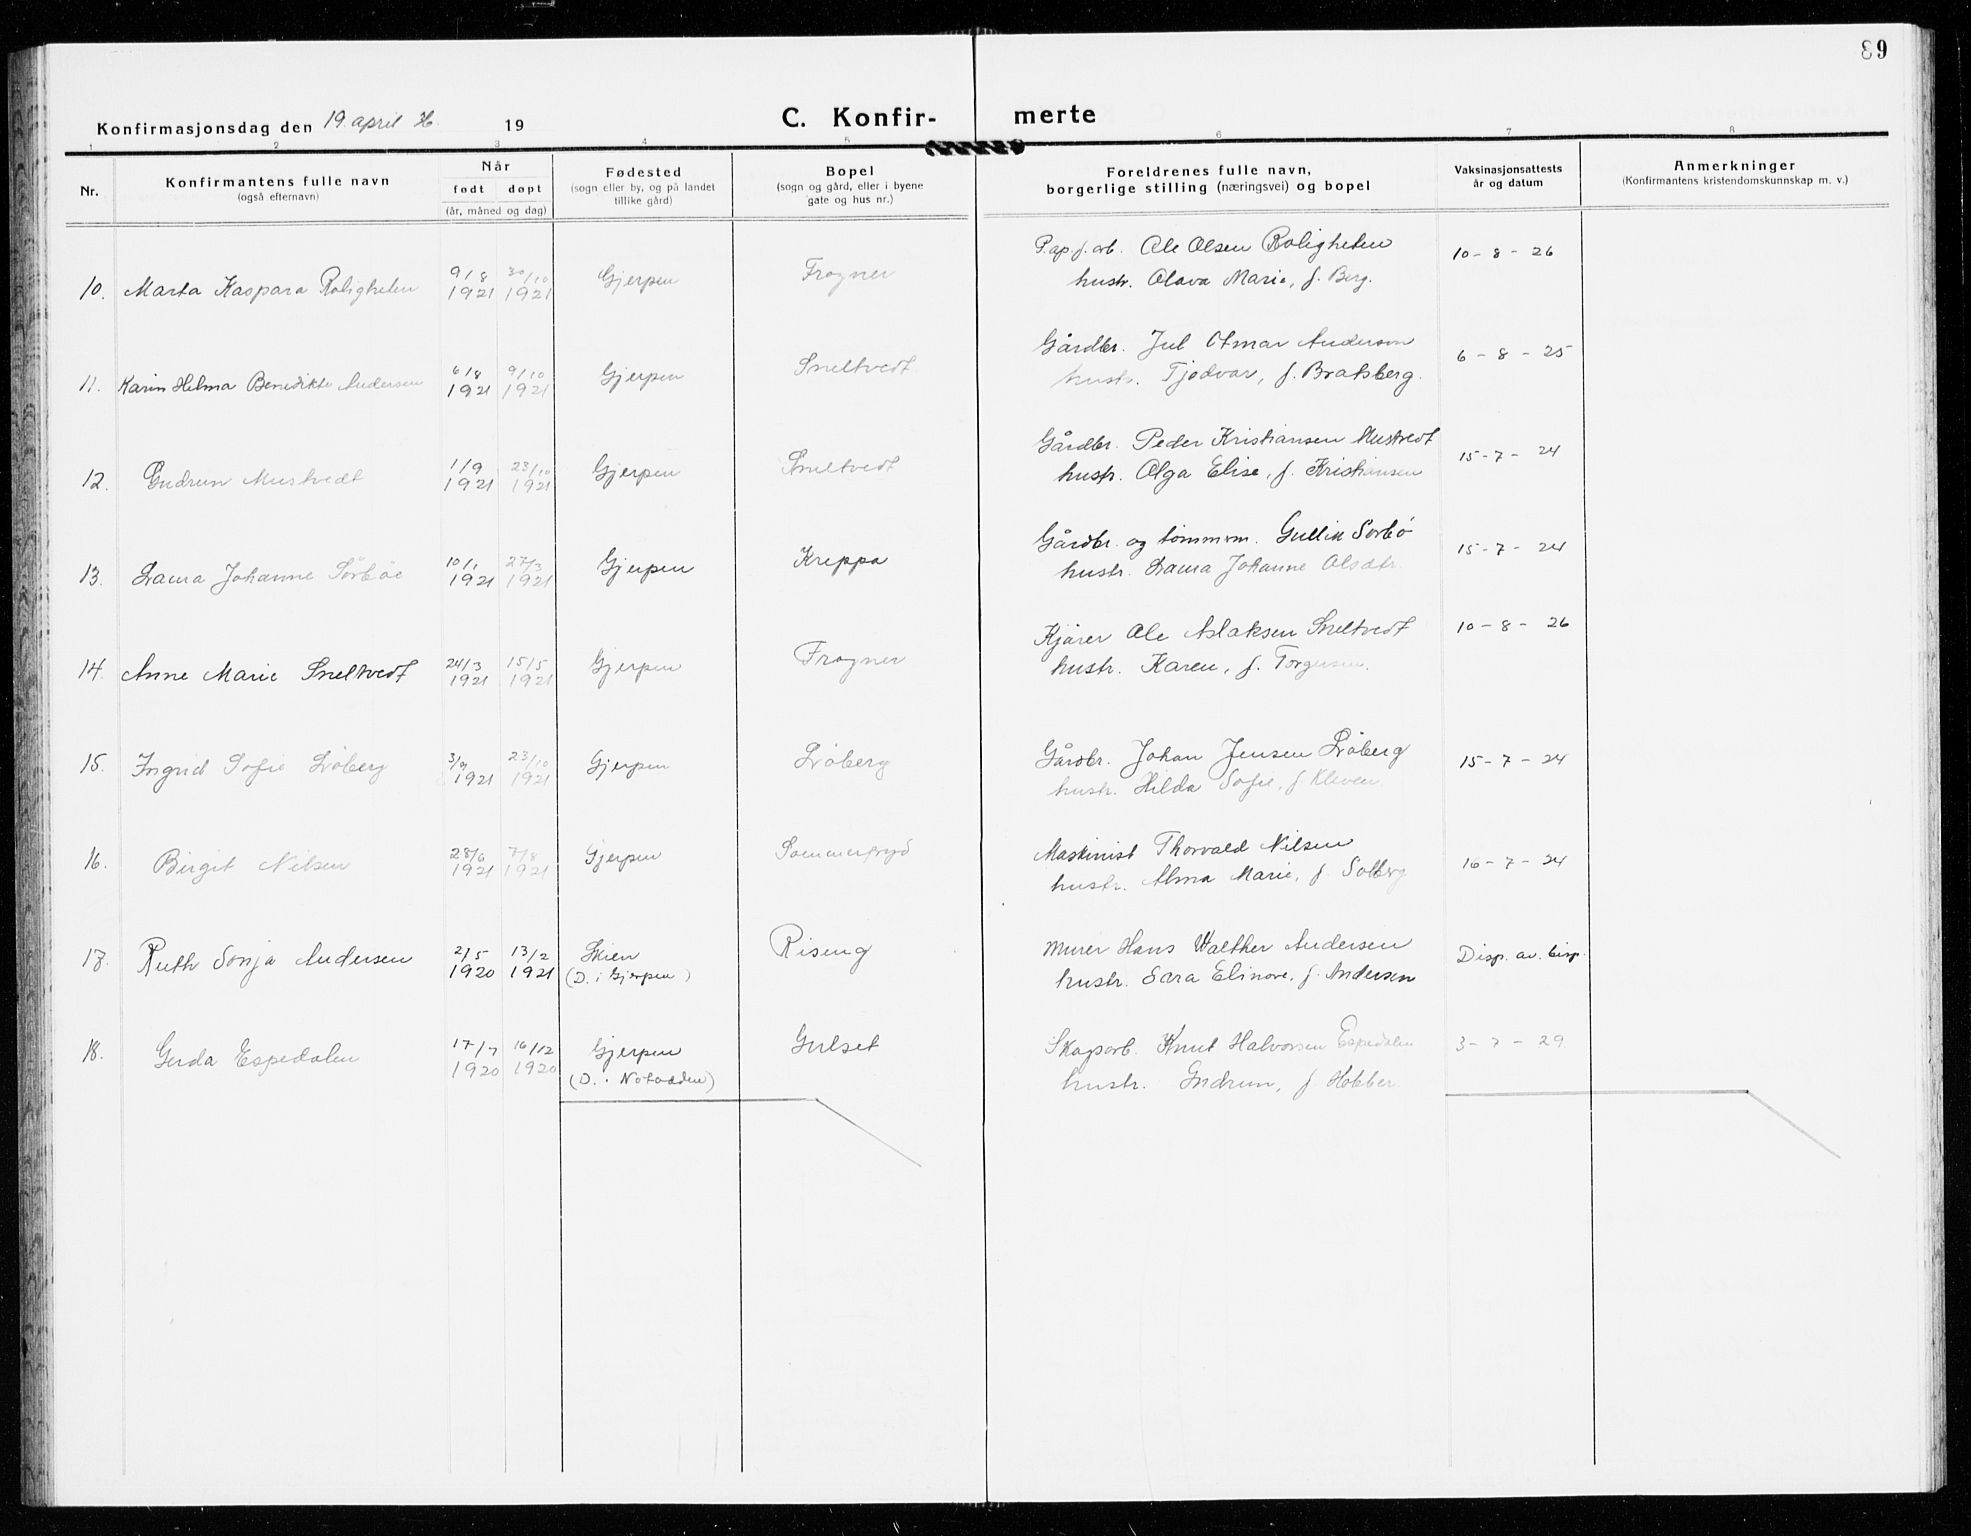 89
Konfirmasjonsdag den 19. april 36. 19
C. Konfir- merte
1 2 3 4 5 6 7 8
Nr.
Konfirmantens fulle navn
(også efternavn)
Når
født døpt
(år, måned og dag)
Fødested
(sogn eller by, og på landet
tillike gård)
Bopel
(sogn og gård, eller i byene
gate og hus nr.)
Foreldrenes fulle navn,
borgerlige stilling (næringsvei) og bopel
Vaksinasjonsattests
år og datum
Anmerkninger
(Konfirmantens kristendomskunnskap m. v.)
10. Marta Kaspara Roligheten 9/8 1921 30/10 1921 Gjerpen Frogner
Pap.f.arb. Ole Olsen Roligheten
hustr. Olava Marie, f. Berg. 10-8-26
11. Karin Helma Benedikte Andersen 6/8 1921 9/10 1921 Gjerpen Sneltvedt
Gårdbr. Jul Otmar Andersen
hustr. Tjodvar, f. Bratsberg. 6-8-25
12. Gudrun Mustvedt 1/9 1921 23/10 1921 Gjerpen Sneltvedt
Gårdbr. Peder Kristiansen Mustvedt
hustr. Olga Elise, f. Kristiansen 15-7-24
13. Laura Johanne Sørbøe 10/1 1921 27/3 1921 Gjerpen Kreppa
Gårdbr. og tømmerm. Gullik Sørbø
hustr. Laura Johanne Olsdtr. 15-7-24
14. Anne Marie Sneltvedt 24/3 1921 15/5 1921 Gjerpen Frogner
Kjører Ole Aslaksen Sneltvedt
hustr. Karen, f. Torgersen. 10-8-26
15. Ingrid Sofie Løberg 3/9 1921 23/10 1921 Gjerpen Løberg
Gårdbr. Johan Jensen Løberg
hustr. Hilda Sofie, f. Kleven. 15-7-24
16. Birgit Nilsen 28/6 1921 7/8 1921 Gjerpen Sommerfryd
Maskinist Thorvald Nilsen
hustr. Alma Marie, f. Solberg 16-7-24
17. Ruth Sonja Andersen 2/5 1920 13/2 1921 Skien (D. i Gjerpen) Rising
Murer Hans Walther Andersen
hustr. Sara Elinore, f. Andersen Disp. av. bisp.
18. Gerda Espedalen 17/7 1920 16/12 1920 Gjerpen (D. i Notodden) Gulset
Skogsarb. Knut Halvorsen Espedalen
hustr. Gudrun, f. 3-7-29